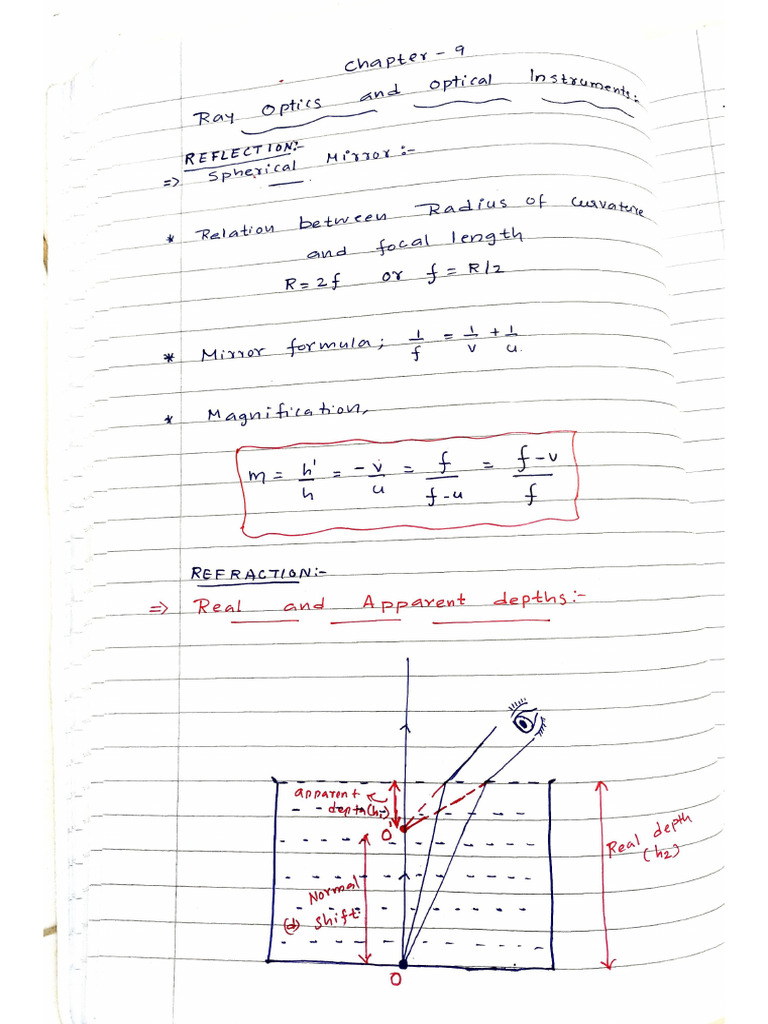 Chapter - 9
Ray Optics and Optical Instruments:-
REFLECTION:-
⇒ Spherical Mirror:-
* Relation between Radius of curvature
and focal length
R = 2f or f = R/2
* Mirror formula; 1/f = 1/v + 1/u.
* Magnification,
m = h'/h = -v/u = f/f-u = f-v/f
REFRACTION:-
⇒ Real and Apparent depths:-
apparent
depth(h₁)
O'
Real depth
(h2)
Normal
(d) shift
O